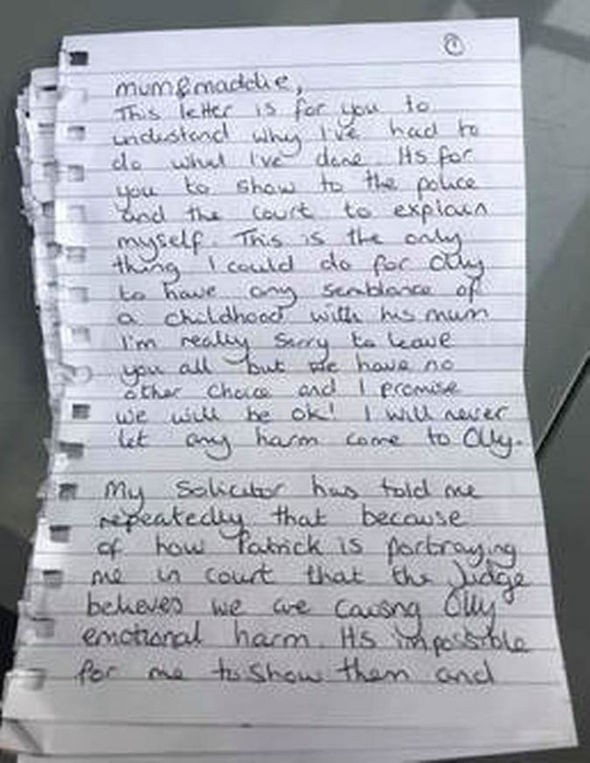 1
mum&maddie,
This letter is for you to
understand why I've had to
do what I've done. Its for
you to show to the police
and the court to explain
myself. This is the only
thing I could do for Olly
to have any semblance of
a childhood with his mum
I'm really sorry to leave
you all but we have no
other choice and I promise
we will be ok! I will never
let any harm come to Olly.
My Solicitor has told me
repeatedly that because
of how Patrick is portraying
me in court that the Judge
believes we are causing Olly
emotional harm. Its impossible
for me to show them and